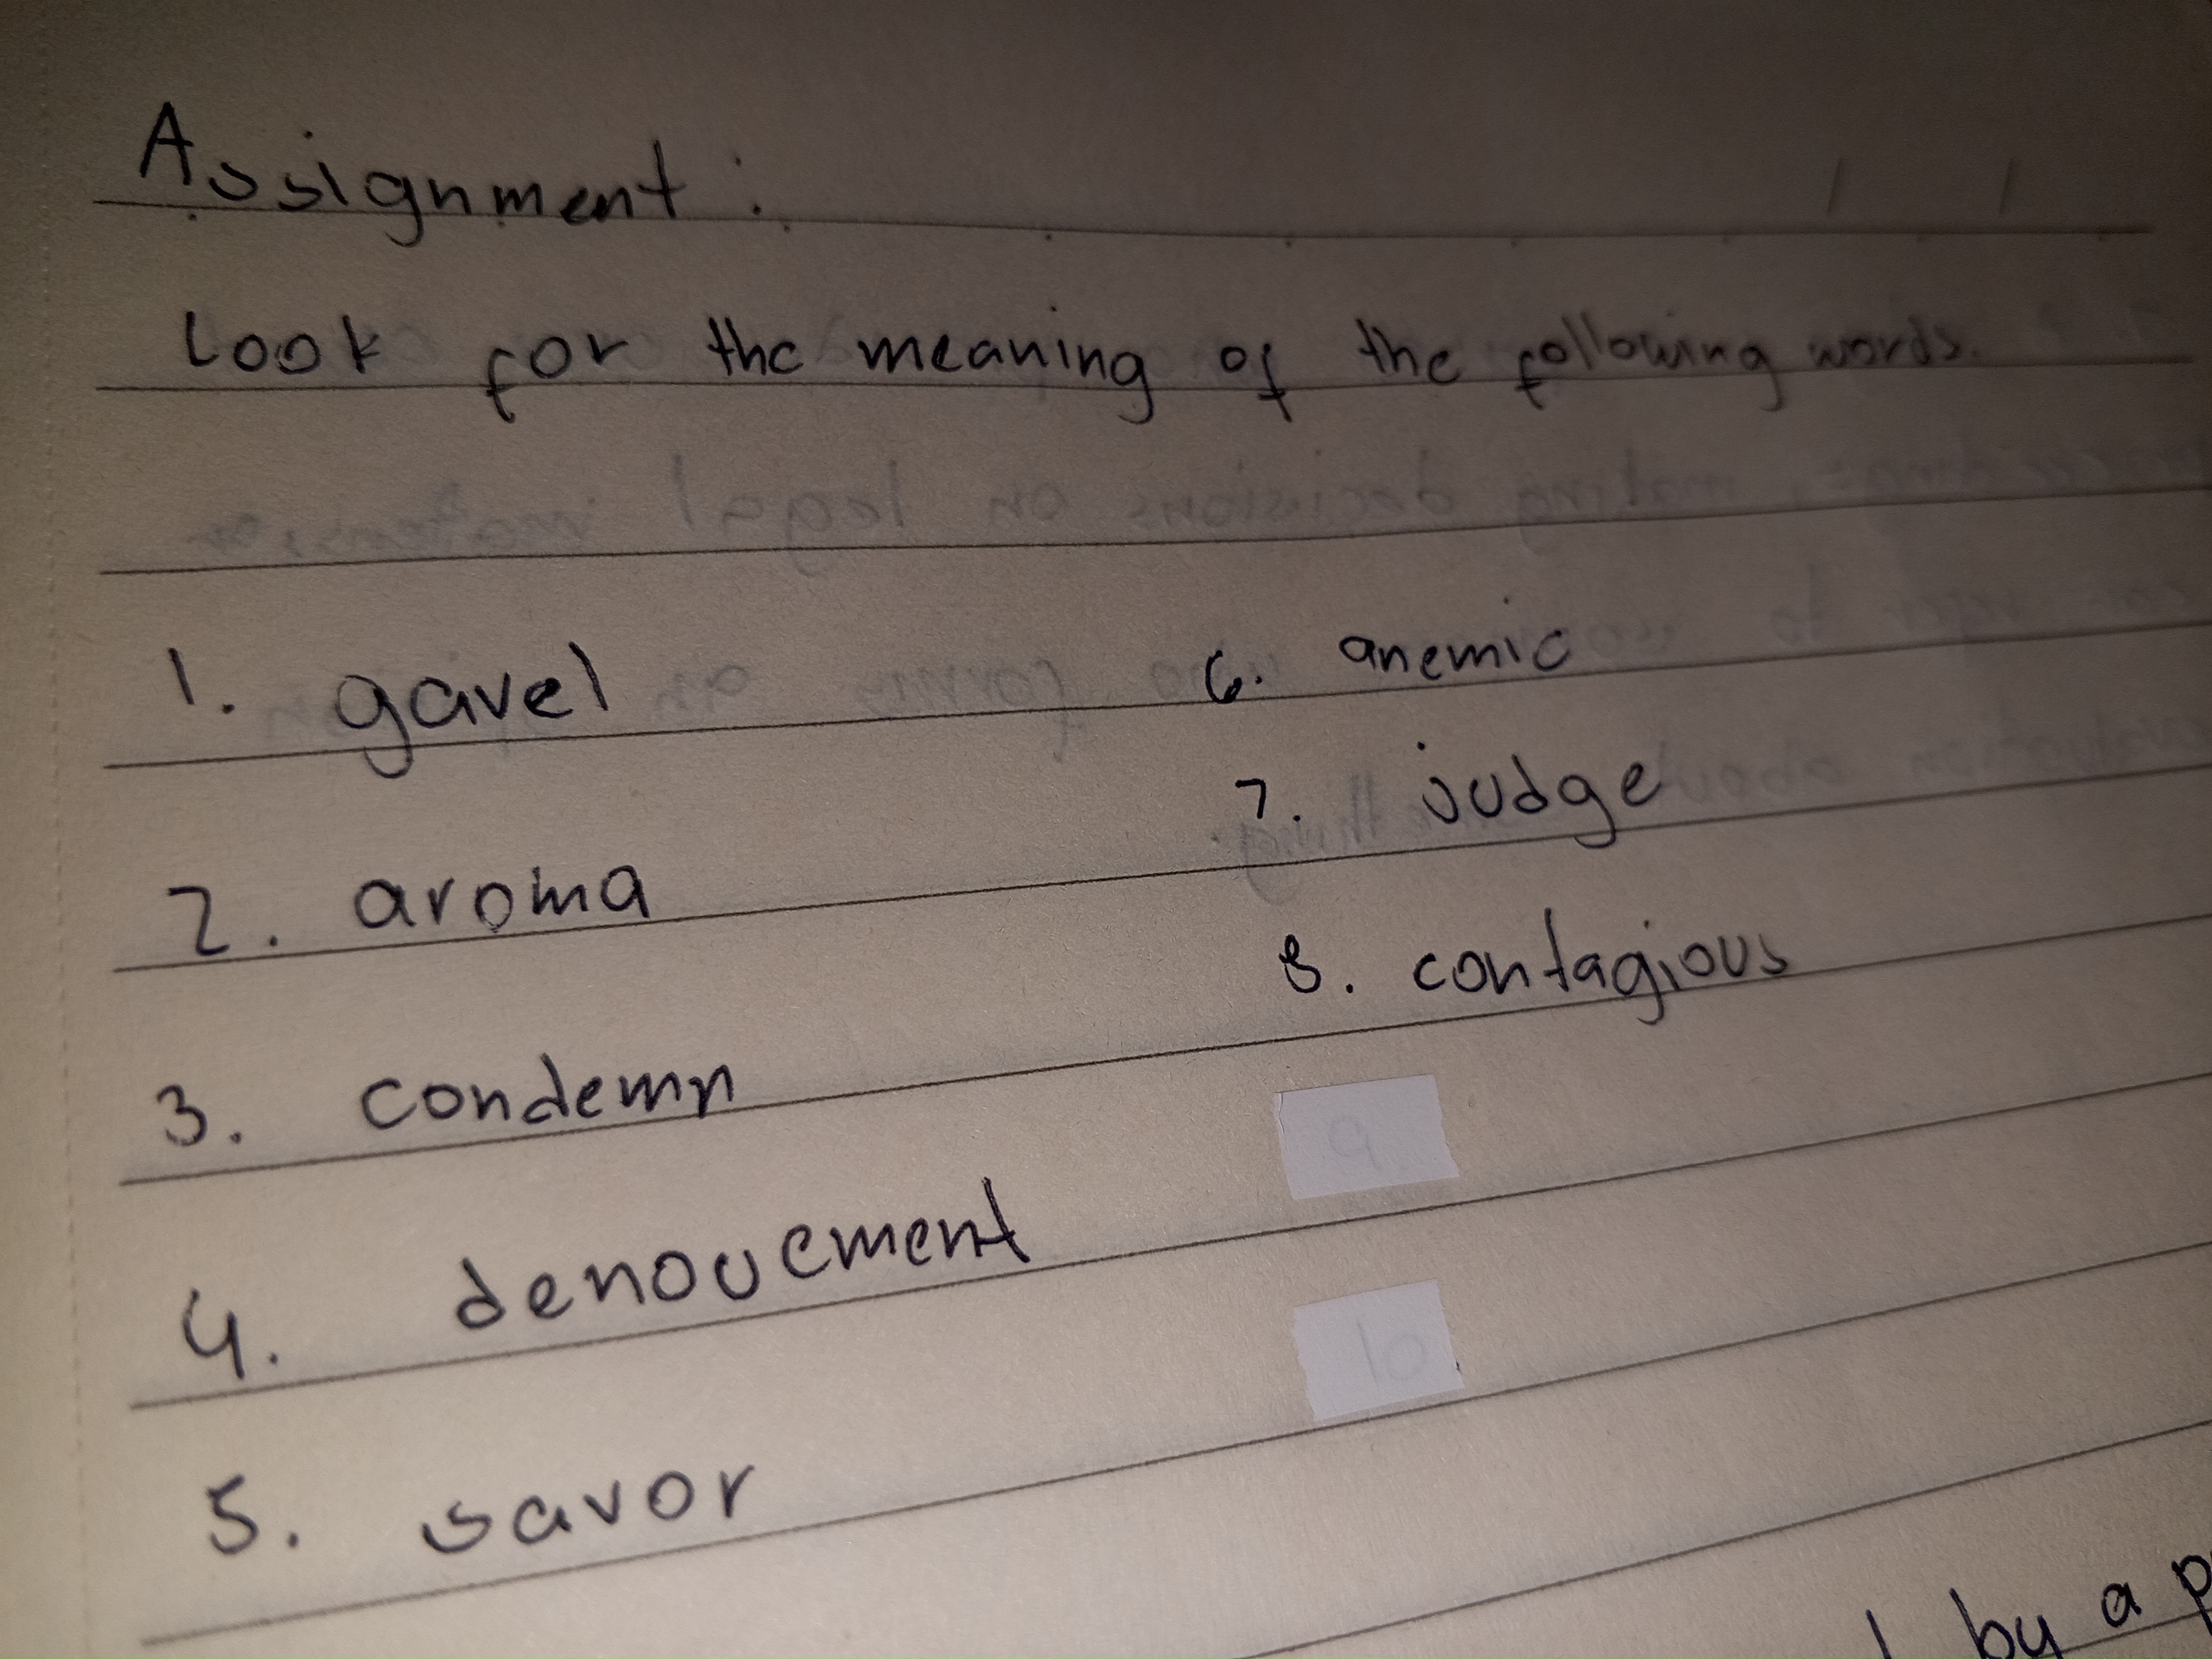 Assignment:
Look for the meaning of the following words.
1. gavel
2. aroma
3. condemn
4. denouement
5. savor
6. anemic
7. judge
8. contagious
9
10
by a